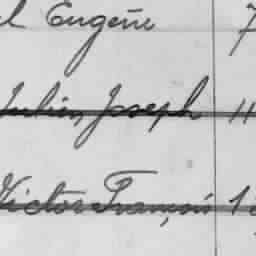 l Eugène 7
Julien, Joseph 11
Victor François 1